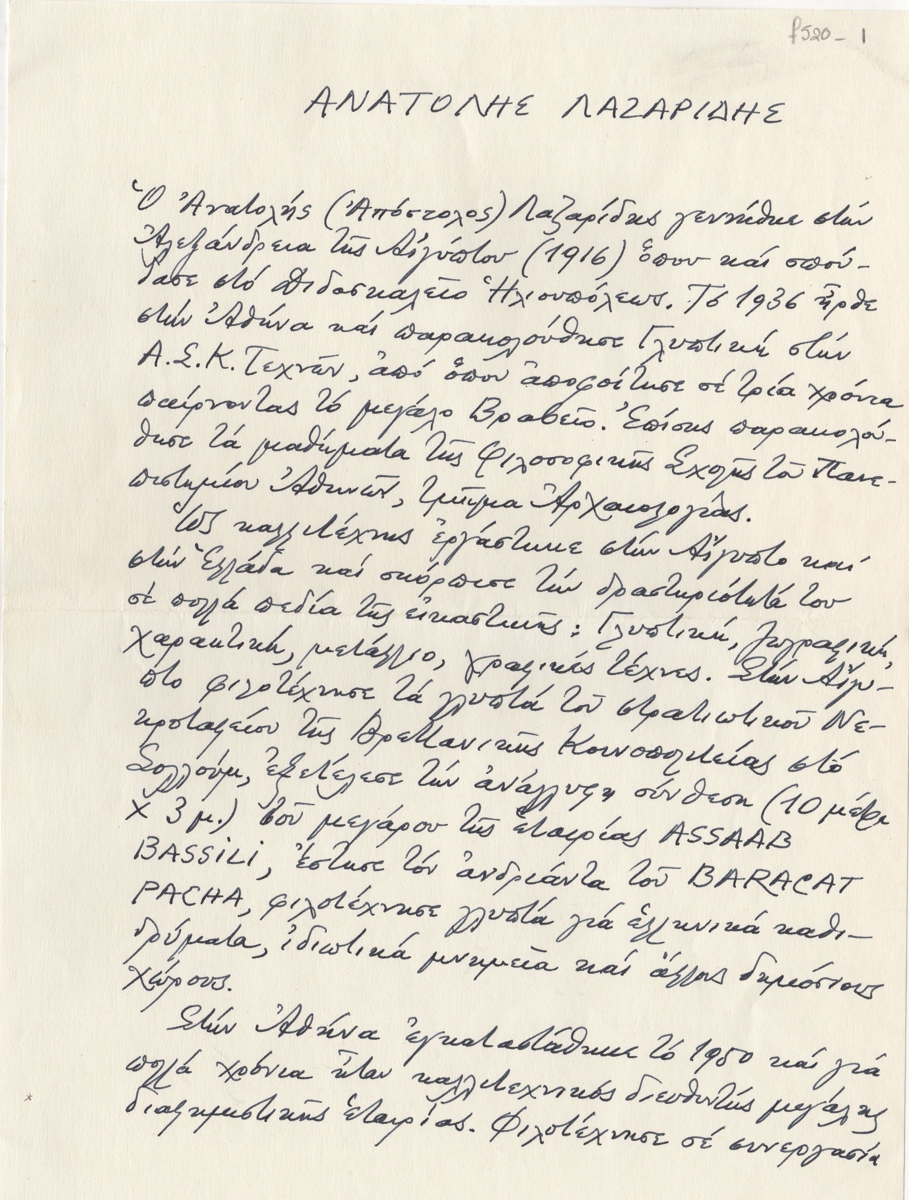 f520 - 1
ΑΝΑΤΟΛΗΣ ΛΑΖΑΡΙΔΗΣ
Ὁ Ἀνατολής (Ἀπόστολος) Λαζαρίδης γεννήθηκε στήν
Ἀλεξάνδρεια τῆς Αἰγύπτου (1916) ὅπου καί σπού-
δασε στό Διδασκαλεῖο Ἡλιουπόλεως. Τό 1936 ἦρθε
στήν Ἀθήνα καί παρακολούθησε Γλυπτική στήν
Α.Σ.Κ.Τεχνῶν, ἀπό ὅπου ἀποφοίτησε σέ τρία χρόνια
παίρνοντας τό μεγάλο Βραβεῖο. Ἐπίσης παρακολού-
θησε τά μαθήματα τῆς Φιλοσοφικῆς Σχολῆς τοῦ Πανε-
πιστημίου Ἀθηνῶν, τμῆμα Ἀρχαιολογίας.
Ὡς καλλιτέχνης ἐργάστηκε στήν Αἴγυπτο καί
στήν Ἑλλάδα καί σκόρπισε τήν δραστηριότητά του
σέ πολλά πεδία τῆς εἰκαστικῆς: Γλυπτική, ζωγραφική,
χαρακτική, μετάλλιο, γραφικές τέχνες. Στήν Αἴγυ-
πτο φιλοτέχνησε τά γλυπτά τοῦ στρατιωτικοῦ Νε-
κροταφείου τῆς Βρεττανικῆς Κοινοπολιτείας στό
Σολλούμ, ἐξετέλεσε τήν ἀνάγλυφη σύνθεση (10 μέτρα
Χ 3 μ.) τοῦ μεγάρου τῆς ἑταιρίας ASSAAB
BASSILI, ἔστησε τόν ἀνδριάντα τοῦ BARACAT
PACHA, φιλοτέχνησε γλυπτά γιά ἑλληνικά καθι-
δρύματα, ἰδιωτικά μνημεῖα καί ἄλλους δημόσιους
χώρους.
Στήν Ἀθήνα ἐγκαταστάθηκε τό 1950 καί γιά
πολλά χρόνια ἦταν καλλιτεχνικός διευθυντής μεγάλης
διαφημιστικῆς ἑταιρίας. Φιλοτέχνησε σέ συνεργασία